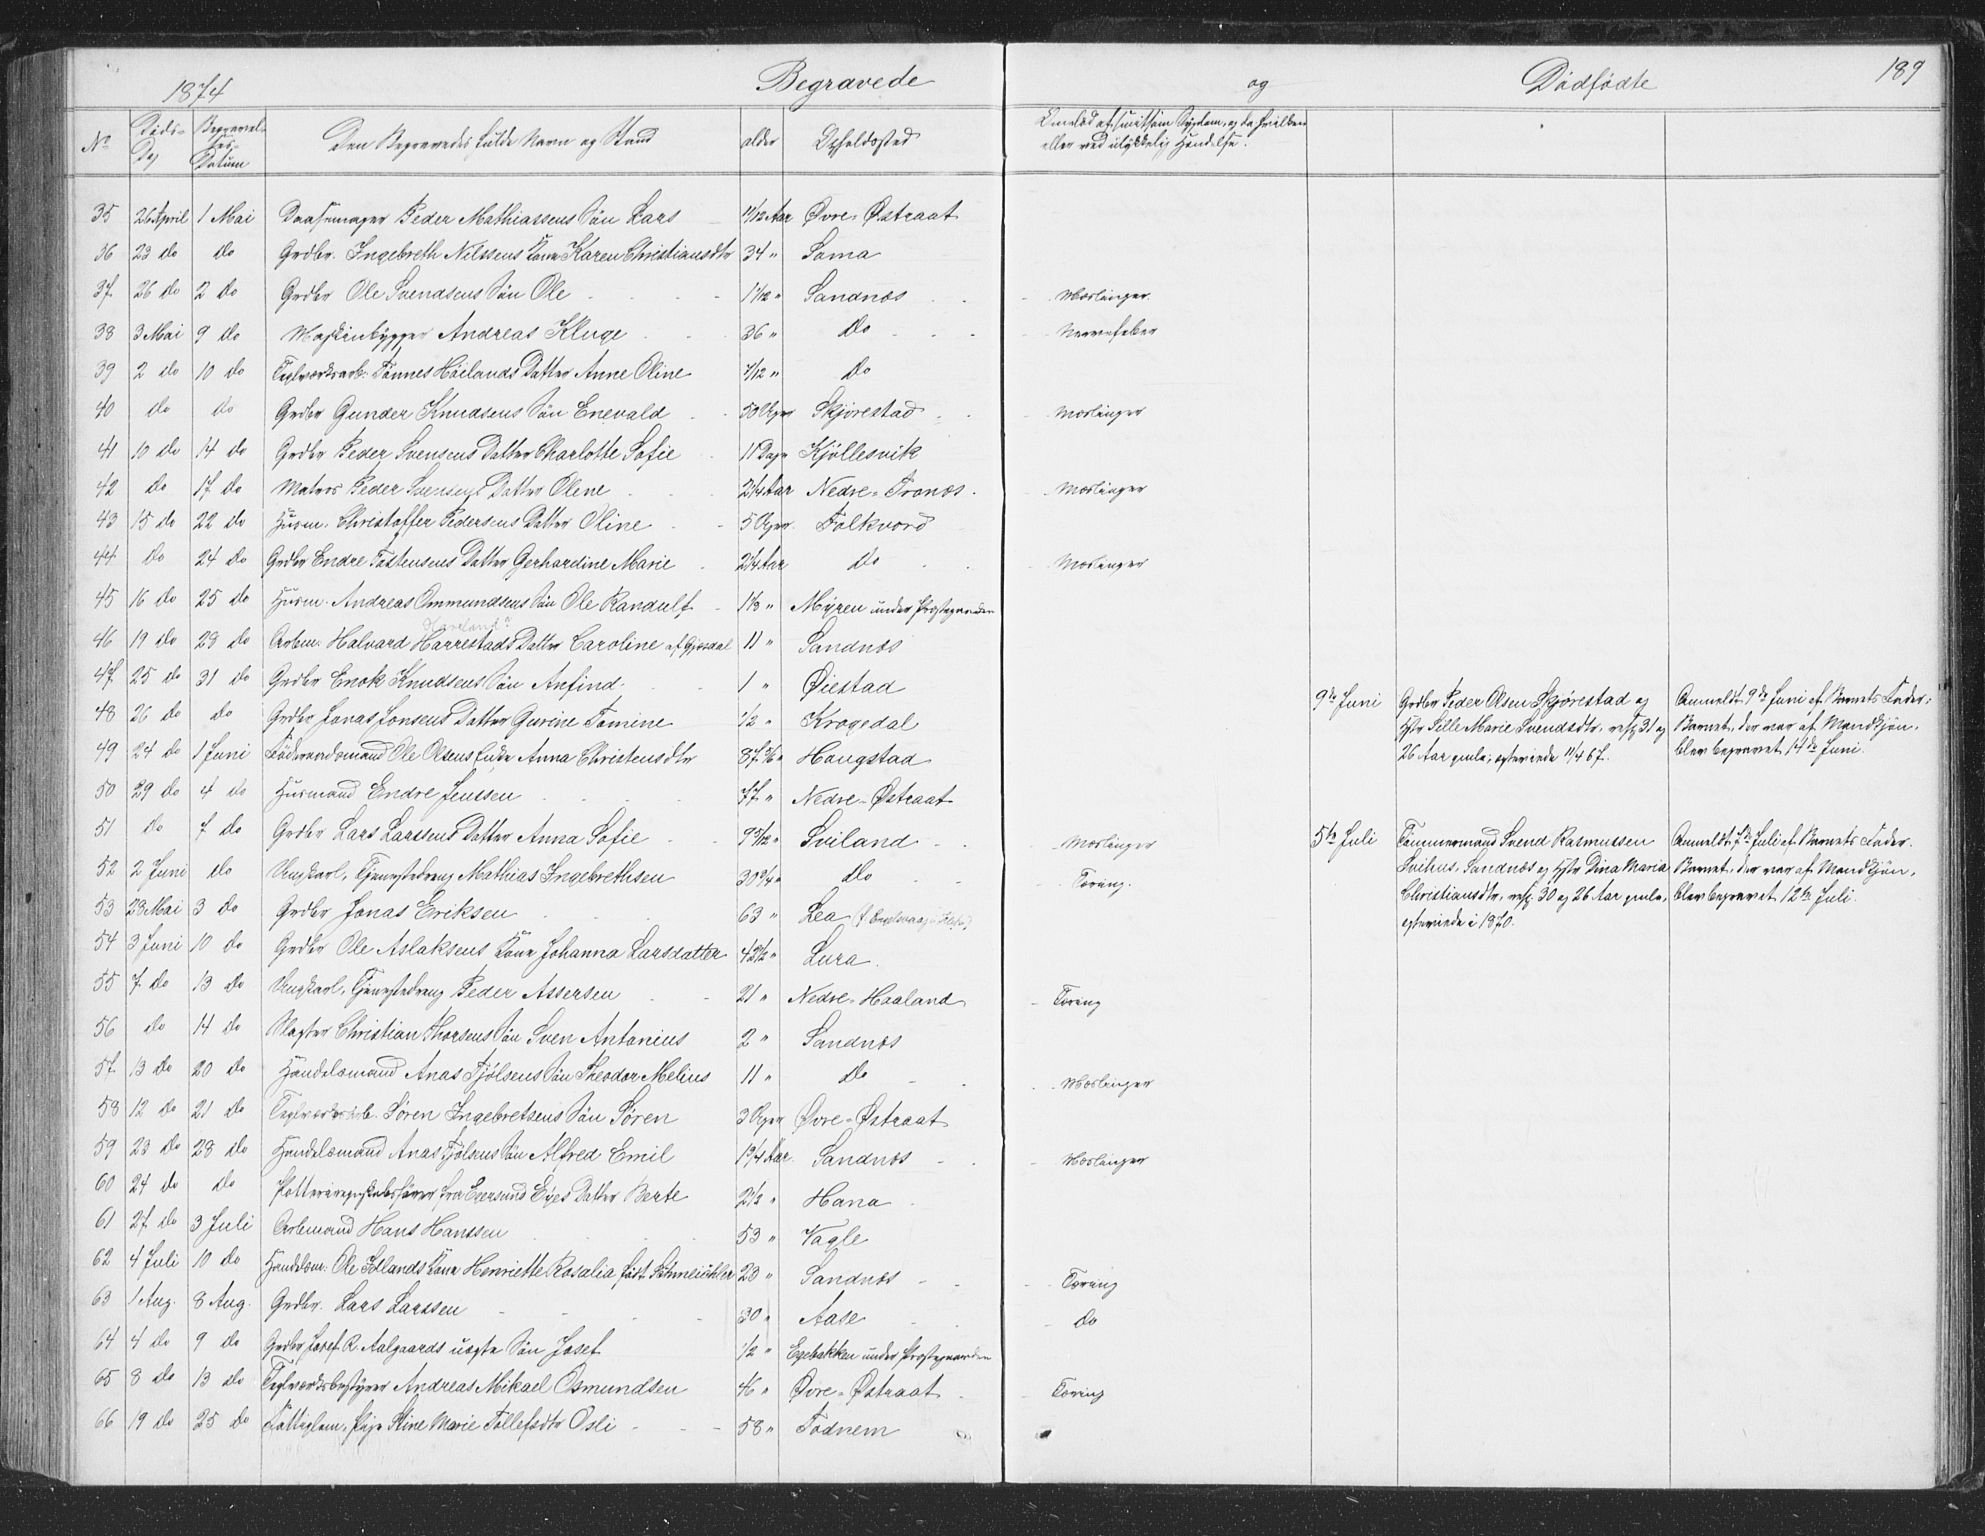 1874 Begravede og Dødfødte 189
No Døds-Dag Begravelses-Datum Den Begravedes fulde Navn og Stand alder Opholdssted Om død af smitsom Sygdom, og da hvilken
eller ved ulykkelig Hendelse.
35 26 April 1 Mai Peder Mathiassens Søn Lars 11/12 Aar Øvre-Østraat
36 23 do do Grdbr. Ingebreth Nilssens Kone Karen Christiansdtr 34 " Soma
37 26 do 2 do Grdbr Ole Svendsens Søn Ole 1 1/12 " Sandnæs Mæslinger.
38 3 Mai 9 do Maskinbygger Andreas Kluge 36 " do Nervefeber
39 2 do 10 do Teglværksarb. Tønnes Høilands Datter Anne Oline 7/12 " do
40 do do Grdbr Gunder Knudsens Søn Enevald 50 Uger Skjørestad Mæslinger
41 10 do 14 do Grdbr Peder Svensens Datter Charlotte Sofie 11 Dage Kjøllesvik
42 do 17 do Matros Peder Svensens Datter Olene 2 1/4 Aar Nedre-Tronæs Mæslinger
43 15 do 22 do Husm. Christoffer Pedersens Datter Oline 5 Uger Folkvord
44 do 24 do Grdbr Endre Tostensens Datter Gerhardine Marie 2 1/4 Aar do Mæslinger
45 16 do 25 do Husm. Andreas Ommundsens Søn Ole Randulf 1 1/3 " Myren under Præstegaarden
46 19 do 28 do Arbm. Halvard Harrestads Datter Caroline af Gjesdal 11 " Sandnæs
47 25 do 31 do Grdbr Enok Knudsens Søn Anfind 1 " Øiestad
48 26 do do Grdbr Jonas Jonsens Datter Gurine Tomine 1/2 " Krogedal
49 24 do 1 Juni Føderaadsmand Ole Olsens Enke Anna Christensdtr 87 " Haugstad
50 29 do 4 do Husmand Endre Jenssen 77 " Nedre-Østraat
51 do 7 do Grdbr Lars Larssens Datter Anna Sofie 9 5/12 " Sviland Mæslinger
52 2 Juni do Ungkarl, Tjenestedreng Mathias Ingebrethsen 30 3/4 " do Tæring.
53 28 Mai 3 do Grdbr Jonas Eriksen 63 " Lea
54 3 Juni 10 do Grdbr Ole Aslaksens Kone Johanna Larsdatter 43 1/2 " Lura
55 7 do 13 do Ungkarl, Tjenestedreng Peder Assersen 21 " Nedre-Haaland Tæring
56 do 14 do Slagter Christian Thorsens Søn Sven Antonius 2 " Sandnæs
57 13 do 20 do Handelsmand Anas Tjølsens Søn Theodor Melius 11 " do Mæslinger
58 12 do 21 do Teglværksarb. Søren Ingebretsens Søn Søren 3 Uger Øvre-Østraat
59 23 do 28 do Handelsmand Anas Tjølsens Søn Alfred Emil 1 3/4 Aar Sandnæs Mæslinger
60 24 do do fra Egersund Eyes Datter Berte 2 1/2 " Hana
61 27 do 3 Juli Arbmand Hans Hanssen 53 " Vagle
62 4 Juli 10 do Handelsm. Ole Idlands Kone Henriette Rosalia født Schmeichler 23 " Sandnæs Tæring
63 1 Aug. 8 Aug. Grdbr. Lars Larssen 30 " Aase do
64 4 do 9 do Grdbr Josef R Aalgaards uægte Søn Josef 1/2 " Egebakken under Præstegaarden
65 8 do 13 do Teglværksbestyrer Andreas Mikael Osmundsen 46 " Øvre-Østraat Tæring
66 19 do 25 do Fattiglem, Pige Stine Marie Tollefsdtr Osli 58 " Todnem
9de Juni Grdbr Peder Olsen Skjørestad og Anmeldt 9de Juni af Barnets Fader;
Hstr Sille Marie Svendsdtr, resp 31 og Barnet, der var af Mandkjøn,
26 Aar gamle; egteviede 11/4 67. blev begravet 14de Juni.
5te Juli Tømmermand Svend Rasmussen Anmeldt 7de Juli af Barnets Fader.
Svihus, Sandnæs og Hstr Dina Maria Barnet, der var af Mandkjøn,
Christiansdtr, resp. 30 og 26 Aar gamle, blev begravet 12te Juli.
egteviede i 1870.